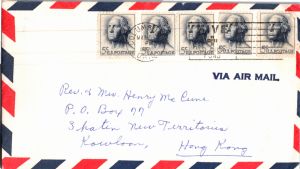 5c U.S. POSTAGE 5c U.S. POSTAGE 5c U.S. POSTAGE 5c U.S. POSTAGE 5c U.S. POSTAGE
VIA AIR MAIL
Rev. & Mrs. Henry Mc Cune
P.O. Box 77
Shatin New Territories
Kowloon, Hong Kong